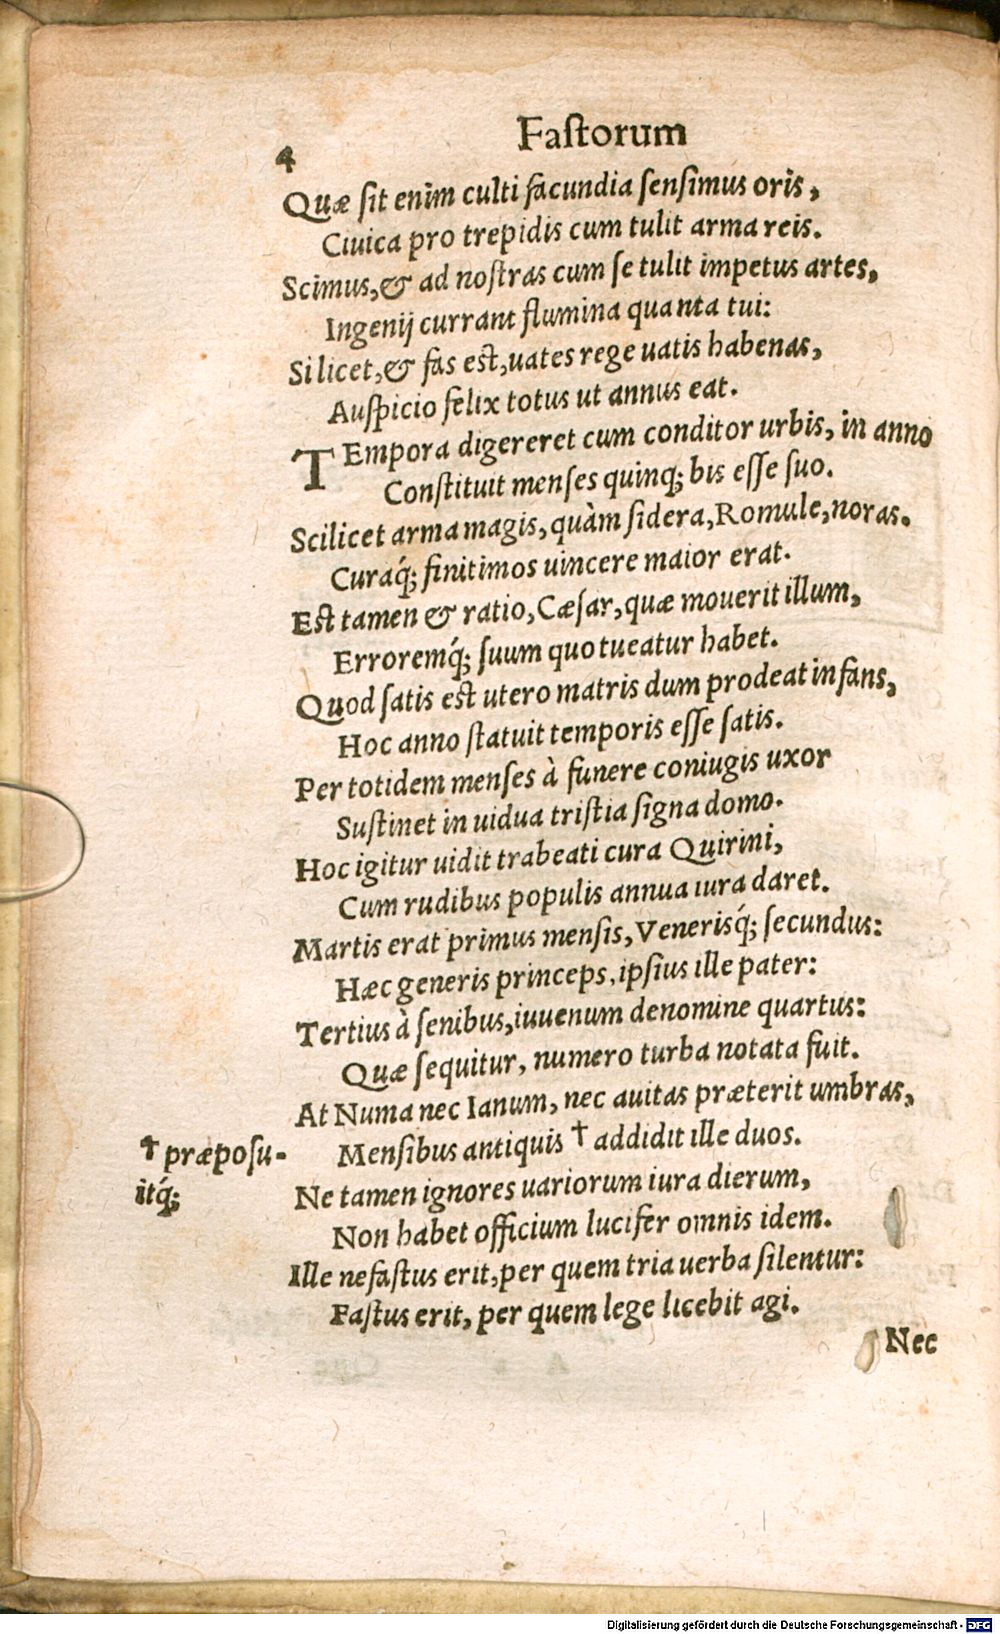 4
Faſtorum
Quæ ſit enim culti facundia ſenſimus oris,
Ciuica pro trepidis cum tulit arma reis.
Scimus, & ad noſtras cum ſe tulit impetus artes,
Ingenij currant flumina quanta tui:
Si licet, & fas eſt, uates rege uatis habenas,
Auſpicio felix totus ut annus eat.
TEmpora digereret cum conditor urbis, in anno
Conſtituit menſes quinq; bis eſſe ſuo.
Scilicet arma magis, quàm ſidera, Romule, noras.
Curaq́; finitimos uincere maior erat.
Eſt tamen & ratio, Cæſar, quæ mouerit illum,
Erroremq́; ſuum quo tueatur habet.
Quod ſatis eſt utero matris dum prodeat infans,
Hoc anno ſtatuit temporis eſſe ſatis.
Per totidem menſes à funere coniugis uxor
Suſtinet in uidua triſtia ſigna domo.
Hoc igitur uidit trabeati cura Quirini,
Cum rudibus populis annua iura daret.
Martis erat primus menſis, Venerisq́; ſecundus:
Hæc generis princeps, ipſius ille pater:
Tertius à ſenibus, iuuenum de nomine quartus:
Quæ ſequitur, numero turba notata fuit.
At Numa nec Ianum, nec auitas præterit umbras,
Menſibus antiquis † addidit ille duos.
† præpoſu-
itq́;
Ne tamen ignores uariorum iura dierum,
Non habet officium lucifer omnis idem.
Ille nefaſtus erit, per quem tria uerba ſilentur:
Faſtus erit, per quem lege licebit agi.
Nec
Digitalisierung gefördert durch die Deutsche Forschungsgemeinschaft - DFG